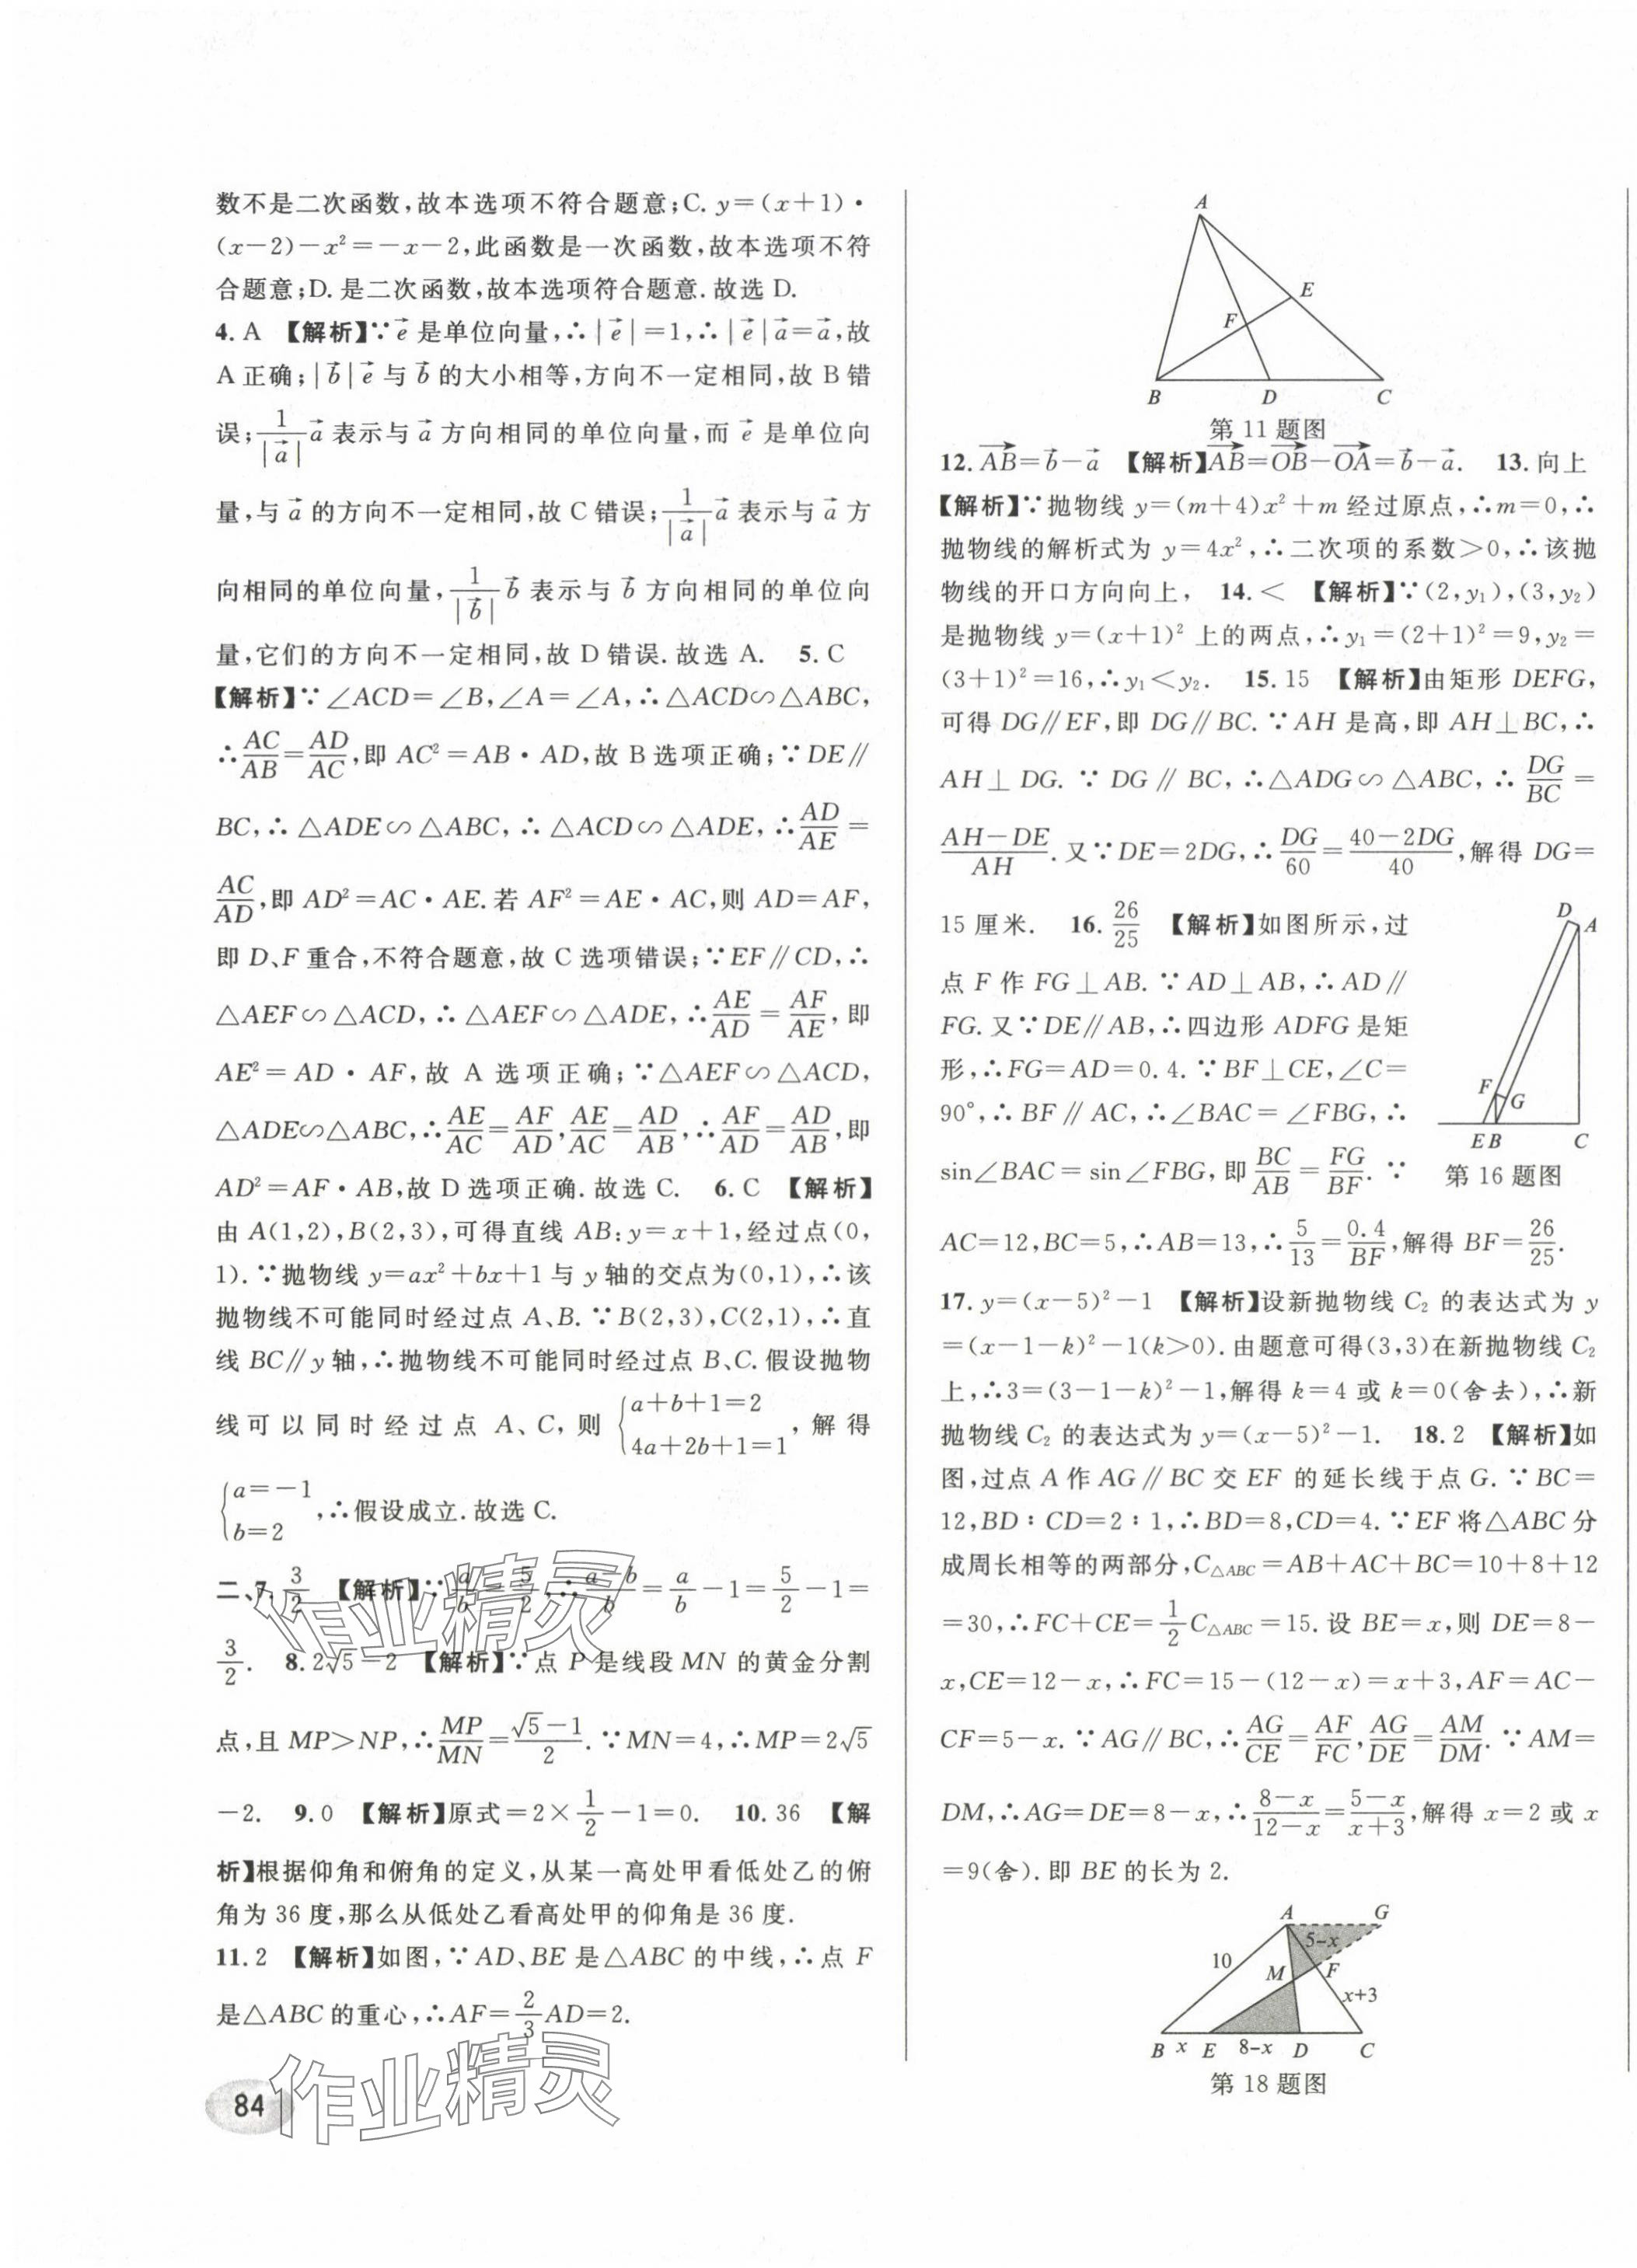 数不是二次函数,故本选项不符合题意;C. y=(x+1)·
(x-2)-x²=-x-2,此函数是一次函数,故本选项不符
合题意;D. 是二次函数,故本选项符合题意.故选 D.
4. A 【解析】∵e⃗ 是单位向量,∴|e⃗|=1,∴|e⃗|a⃗=a⃗,故
A 正确;|b⃗|e⃗ 与 b⃗ 的大小相等,方向不一定相同,故 B 错
误;1/|a⃗| a⃗ 表示与 a⃗ 方向相同的单位向量,而 e⃗ 是单位向
量,与 a⃗ 的方向不一定相同,故 C 错误;1/|a⃗| a⃗ 表示与 a⃗ 方
向相同的单位向量,1/|b⃗| b⃗ 表示与 b⃗ 方向相同的单位向
量,它们的方向不一定相同,故 D 错误.故选 A. 5. C
【解析】∵∠ACD=∠B,∠A=∠A,∴△ACD∽△ABC,
∴AC/AB=AD/AC,即 AC²=AB·AD,故 B 选项正确;∵DE∥
BC,∴△ADE∽△ABC,∴△ACD∽△ADE,∴AD/AE=
AC/AD,即 AD²=AC·AE.若 AF²=AE·AC,则 AD=AF,
即 D、F 重合,不符合题意,故 C 选项错误;∵EF∥CD,∴
△AEF∽△ACD,∴△AEF∽△ADE,∴AE/AD=AF/AE,即
AE²=AD·AF,故 A 选项正确;∵△AEF∽△ACD,
△ADE∽△ABC,∴AE/AC=AF/AD,AE/AC=AD/AB,∴AF/AD=AD/AB,即
AD²=AF·AB,故 D 选项正确.故选 C. 6. C 【解析】
由 A(1,2),B(2,3),可得直线 AB:y=x+1,经过点(0,
1).∵抛物线 y=ax²+bx+1 与 y 轴的交点为(0,1),∴该
抛物线不可能同时经过点 A、B.∵B(2,3),C(2,1),∴直
线 BC∥y 轴,∴抛物线不可能同时经过点 B、C.假设抛物
线可以同时经过点 A、C,则{a+b+1=2 4a+2b+1=1,解得
{a=-1 b=2,∴假设成立.故选 C.
二、7. 3/2 【解析】∵a/b=5/2,∴(a-b)/b=a/b-1=5/2-1=
3/2. 8. 2√5-2 【解析】∵点 P 是线段 MN 的黄金分割
点,且 MP>NP,∴MP/MN=(√5-1)/2.∵MN=4,∴MP=2√5
-2. 9. 0 【解析】原式=2×1/2-1=0. 10. 36 【解
析】根据仰角和俯角的定义,从某一高处甲看低处乙的俯
角为 36 度,那么从低处乙看高处甲的仰角是 36 度.
11. 2 【解析】如图,∵AD、BE 是△ABC 的中线,∴点 F
是△ABC 的重心,∴AF=2/3 AD=2.
作业精灵
作业精灵
84
A
E
F
B D C
第 11 题图
12. AB⃗=b⃗-a⃗ 【解析】AB⃗=OB⃗-OA⃗=b⃗-a⃗. 13. 向上
【解析】∵抛物线 y=(m+4)x²+m 经过原点,∴m=0,∴
抛物线的解析式为 y=4x²,∴二次项的系数>0,∴该抛
物线的开口方向向上, 14. < 【解析】∵(2,y₁),(3,y₂)
是抛物线 y=(x+1)² 上的两点,∴y₁=(2+1)²=9,y₂=
(3+1)²=16,∴y₁<y₂. 15. 15 【解析】由矩形 DEFG,
可得 DG∥EF,即 DG∥BC.∵AH 是高,即 AH⊥BC,∴
AH⊥DG.∵DG∥BC,∴△ADG∽△ABC,∴DG/BC=
(AH-DE)/AH.又∵DE=2DG,∴DG/60=(40-2DG)/40,解得 DG=
15 厘米. 16. 26/25 【解析】如图所示,过
点 F 作 FG⊥AB.∵AD⊥AB,∴AD∥
FG.又∵DE∥AB,∴四边形 ADFG 是矩
形,∴FG=AD=0.4.∵BF⊥CE,∠C=
90°,∴BF∥AC,∴∠BAC=∠FBG,∴
sin∠BAC=sin∠FBG,即 BC/AB=FG/BF.∵
D A
F G
E B C
第 16 题图
AC=12,BC=5,∴AB=13,∴5/13=0.4/BF,解得 BF=26/25.
17. y=(x-5)²-1 【解析】设新抛物线 C₂ 的表达式为 y
=(x-1-k)²-1(k>0).由题意可得(3,3)在新抛物线 C₂
上,∴3=(3-1-k)²-1,解得 k=4 或 k=0(舍去),∴新
抛物线 C₂ 的表达式为 y=(x-5)²-1. 18. 2 【解析】如
图,过点 A 作 AG∥BC 交 EF 的延长线于点 G.∵BC=
12,BD∶CD=2∶1,∴BD=8,CD=4.∵EF 将△ABC 分
成周长相等的两部分,C△ABC=AB+AC+BC=10+8+12
=30,∴FC+CE=1/2 C△ABC=15.设 BE=x,则 DE=8-
x,CE=12-x,∴FC=15-(12-x)=x+3,AF=AC-
CF=5-x.∵AG∥BC,∴AG/CE=AF/FC,AG/DE=AM/DM.∵AM=
DM,∴AG=DE=8-x,∴(8-x)/(12-x)=(5-x)/(x+3),解得 x=2 或 x
=9(舍).即 BE 的长为 2.
A G
10 5-x
M F
x+3
B x E 8-x D C
第 18 题图